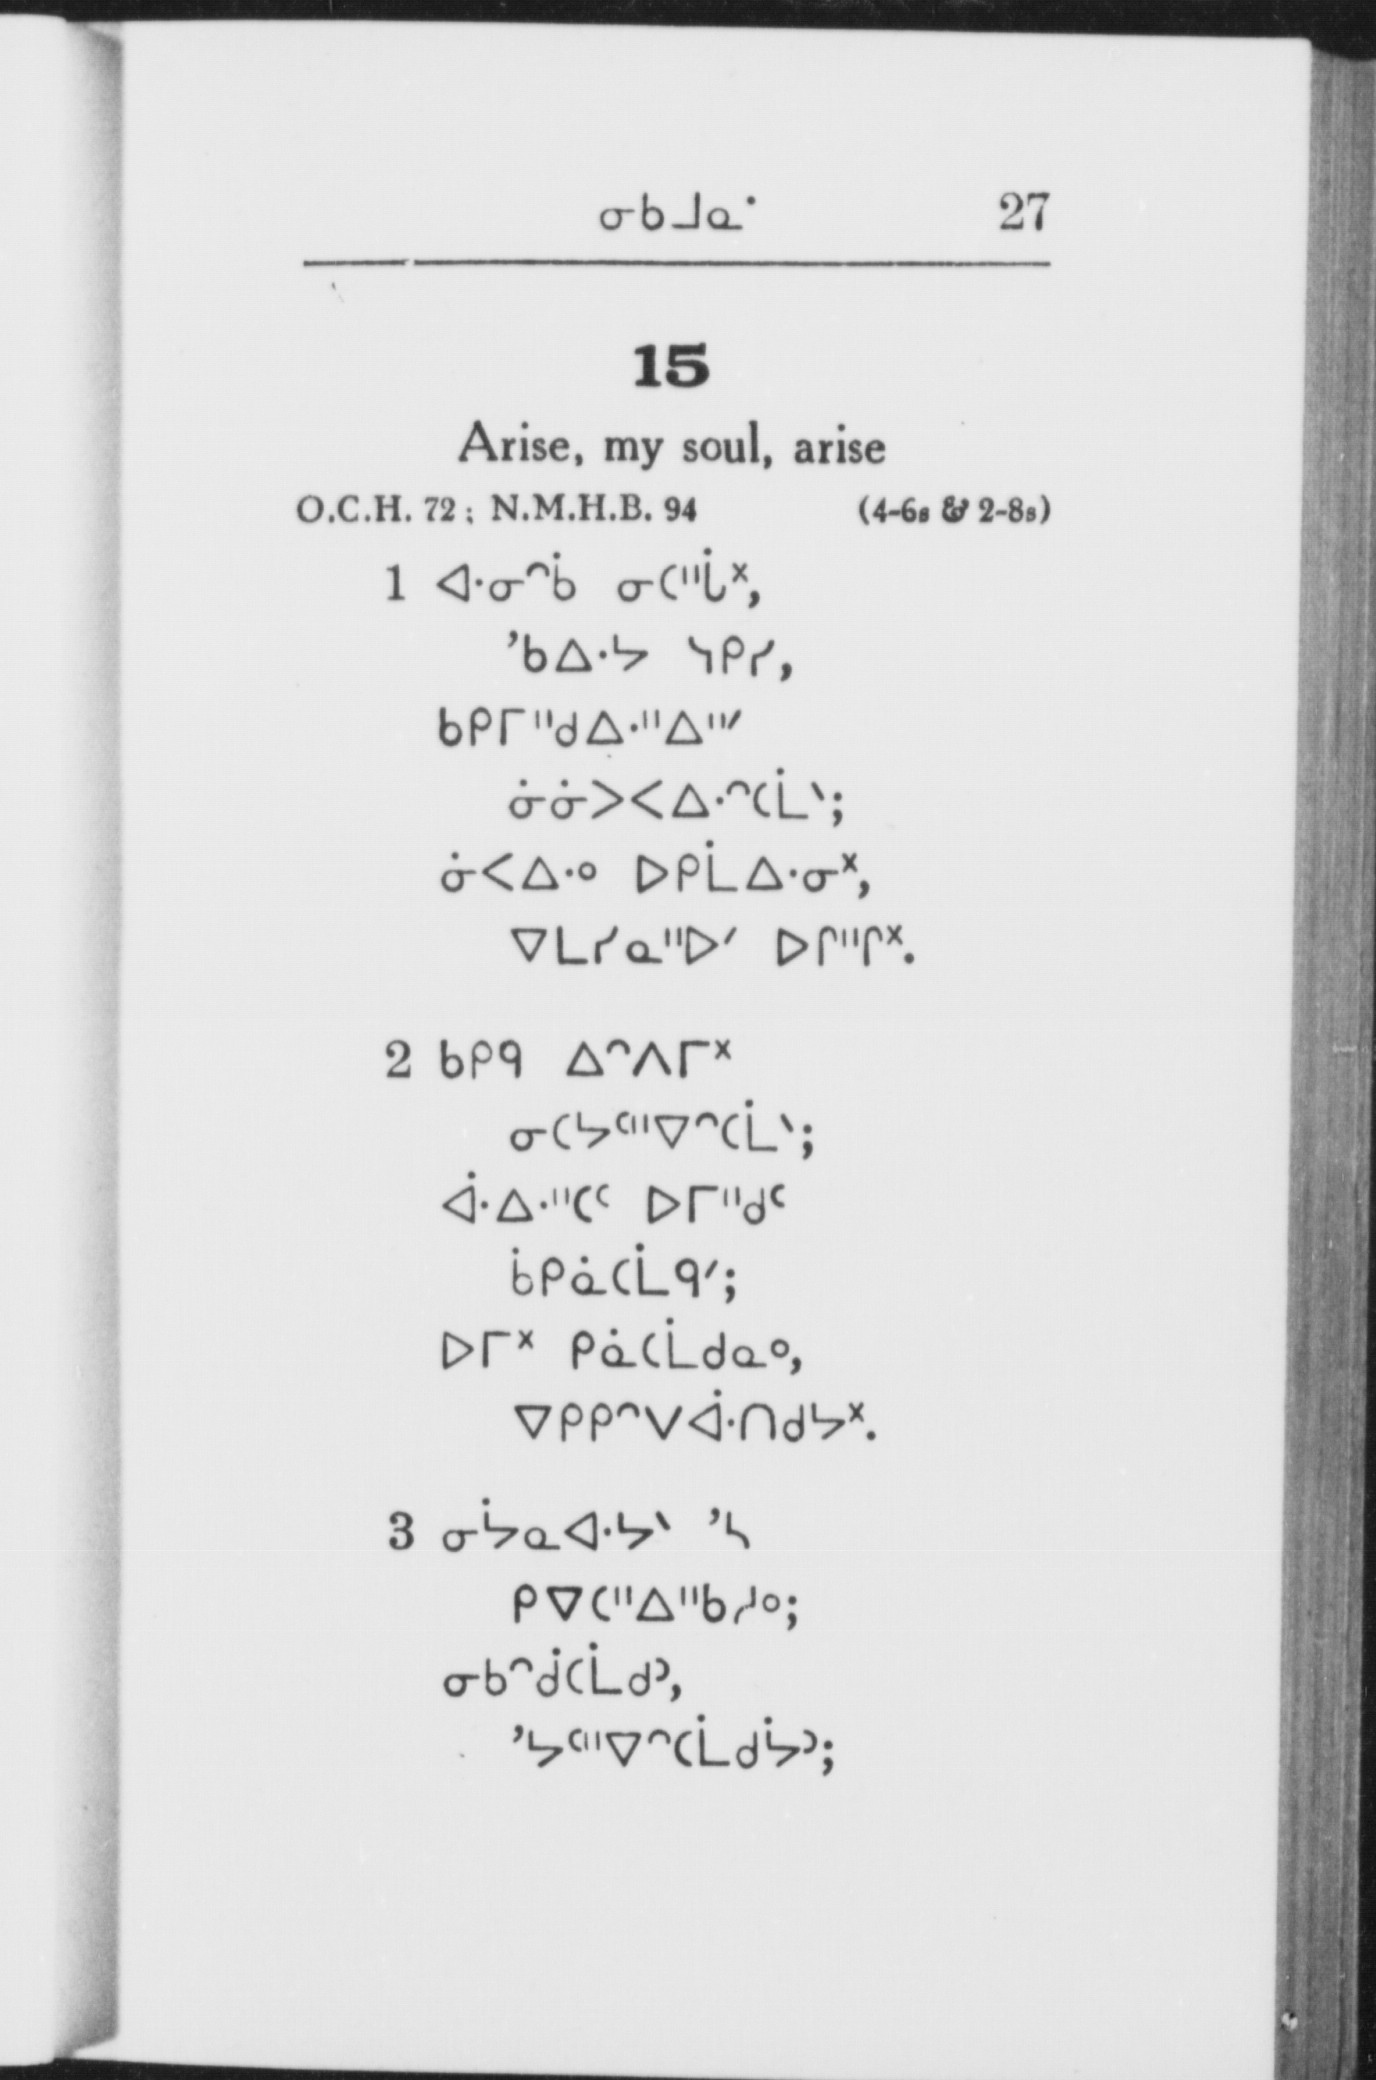 ᓂᑲᒧᓇᐧ 27
15
Arise, my soul, arise
O.C.H. 72; N.M.H.B. 94 (4-6s & 2-8s)
1 ᐊᐧᓂᐢᑳ ᓂᑕᐦᒑᕽ,
’ᑲᐃᐧᔭ ᓭᑭᓯ,
ᑲᑭᒥᐦᑯᐃᐧᐦᐃᐦᐟ
ᓃᓃᐳᐸᐃᐧᐢᑕᒫᐠ;
ᓃᐸᐃᐧᐤ ᐅᑭᒫᐃᐧᓂᕽ,
ᐁᒪᓯᓇᐦᐅᐟ ᐅᒋᐦᒋᕽ.
2 ᑲᑭᑫ ᐃᐢᐱᒥᕽ
ᓂᑕᔭᑕᐦᐁᐢᑕᒫᐠ;
ᐋᐧᐃᐧᐦᑕᑦ ᐅᒥᐦᑯᑦ
ᑳᑭᓈᑕᒫᑫᐟ;
ᐅᒥᕽ ᑭᓈᑕᒫᑯᓇᐤ,
ᐁᑭᑭᐢᐯᐋᐧᑎᑯᔭᕽ.
3 ᓂᔮᓇᐊᐧᔭᐠ ’ᓴ
ᑭᐁᑕᐦᐃᐦᑲᓱᐤ;
ᓂᑲᐢᑰᑕᒫᑯᐣ,
’ᔭᑕᐦᐁᐢᑕᒫᑯᔮᐣ;